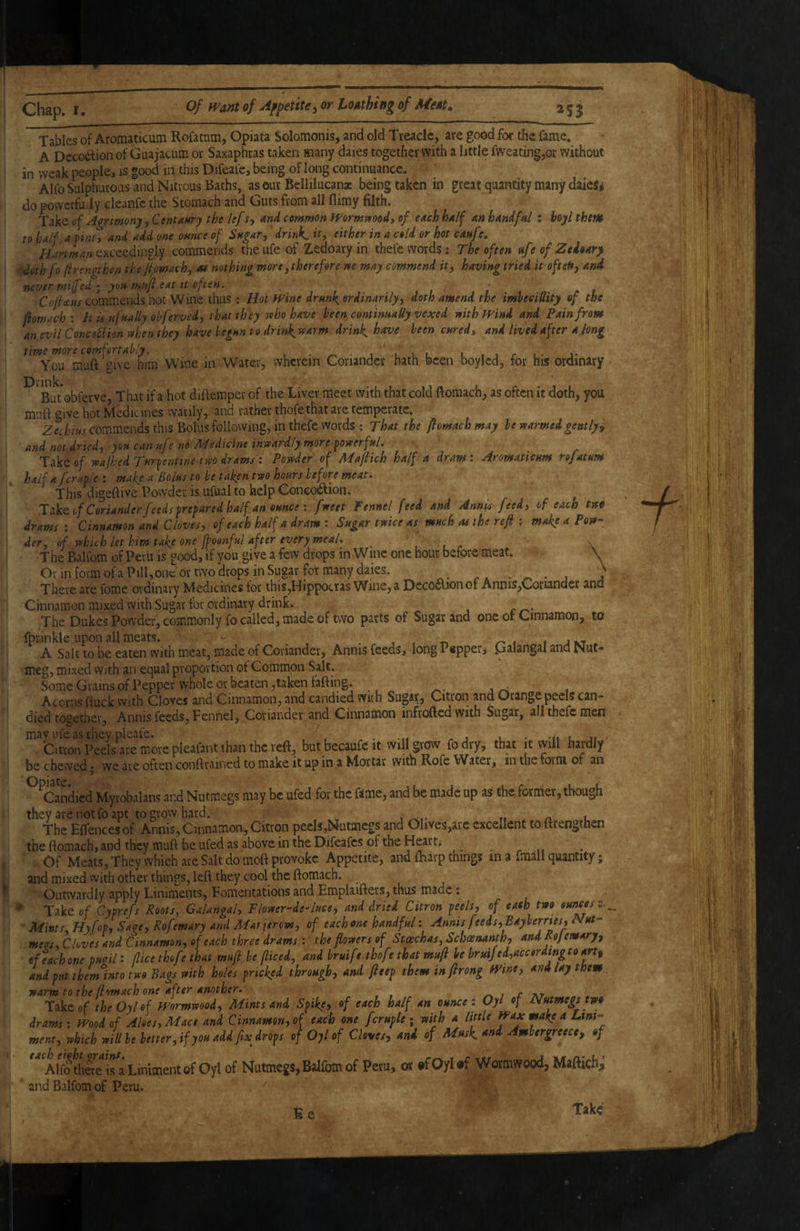 Chap. 1. Of Want of Appetite, or Loathing of Meat. 253
Tables of Aromaticum Rosatum, Opiata Solomonis, and old Treacle, are good for the same.
A Decoction of Guajacum or Saxaphras taken many daies together with a little sweating, or without
in weak people, is good in this Disease, being of long continuance.
Also Sulphurous and Nitrous Baths, as our Bellilucanæ being taken in great quantity many daies,
do powerfully cleanse the Stomach and Guts from all slimy filth.
Take of Agrimony, Centaury the less, and common Wormwood, of each half an handful : boyl them
to half a pint, and add one ounce of Sugar, drink it, either in a cold or hot cause.
Hartman exceedingly commends the use of Zedoary in these words : The often use of Zedoary
doth so strengthen the stomach, as nothing more, therefore we may commend it, having tried it often, and
never missed ; you must eat it often.
Costæus commends hot Wine thus : Hot Wine drunk ordinarily, doth amend the imbecillity of the
stomach : It is usually observed, that they who have been continually vexed with Wind and Pain from
an evil Concoction when they have begun to drink warm drink have been cured, and lived after a long
time more comfortably.
You must give him Wine in Water, wherein Coriander hath been boyled, for his ordinary
Drink.
But observe, That if a hot distemper of the Liver meet with that cold stomach, as often it doth, you
must give hot Medicines warily, and rather those that are temperate.
Zechius commends this Bolus following, in these words : That the stomach may be warmed gently,
and not dried, you can use no Medicine inwardly more powerful.
Take of washed Turpentine two drams : Powder of Mastich half a dram : Aromaticum rosatum
half a scruple : make a Bolus to be taken two hours before meat.
This digestive Powder is usual to help Concoction.
Take of Coriander seeds prepared half an ounce : sweet Fennel seed and Annis seed, of each two
drams : Cinnamon and Cloves, of each half a dram : Sugar twice as much as the rest : make a Pow-
der, of which let him take one spoonful after every meal.
The Balsom of Peru is good, if you give a few drops in Wine one hour before meat.
Or in form of a Pill, one or two drops in Sugar for many daies.
There are some ordinary Medicines for this, Hippocras Wine, a Decoction of Annis, Coriander and
Cinnamon mixed with Sugar for ordinary drink.
The Dukes Powder, commonly so called, made of two parts of Sugar and one of Cinnamon, to
sprinkle upon all meats.
A Salt to be eaten with meat, made of Coriander, Annis seeds, long Pepper, Galangal and Nut-
meg, mixed with an equal proportion of Common Salt.
Some Grains of Pepper whole or beaten, taken fasting.
Acorns stuck with Cloves and Cinnamon, and candied with Sugar, Citron and Orange peels can-
died together, Annis seeds, Fennel, Coriander and Cinnamon infrosted with Sugar, all these men
may use as they please.
Citron Peels are more pleasant than the rest, but because it will grow so dry, that it will hardly
be chewed ; we are often constrained to make it up in a Mortar with Rose Water, in the form of an
Opiate.
Candied Myrobalans and Nutmegs may be used for the same, and be made up as the former, though
they are not so apt to grow hard.
The Essences of Annis, Cinnamon, Citron peels, Nutmegs and Olives, are excellent to strengthen
the stomach, and they must be used as above in the Diseases of the Heart.
Of Meats, They which are Salt do most provoke Appetite, and sharp things in a small quantity ;
and mixed with other things, lest they cool the stomach.
Outwardly apply Liniments, Fomentations and Emplaisters, thus made :
Take of Cypress Roots, Galangal, Flower-de-luce, and dried Citron peels, of each two ounces :
Mints, Hysop, Sage, Rosemary and Marjerom, of each one handful : Annis seeds, Bayberries, Nut-
megs, Cloves and Cinnamon, of each three drams : the flowers of Stœchas, Schœnanth, and Rosemary,
of each one pugil : slice those that must be sliced, and bruise those that must be bruised, according to art,
and put them into two Bags with holes pricked through, and steep them in strong Wine, and lay them
warm to the stomach one after another.
Take of the Oyl of Wormwood, Mints and Spike, of each half an ounce : Oyl of Nutmegs two
drams : Wood of Aloes, Mace and Cinnamon, of each one scruple ; with a little Wax make a Lini-
ment, which will be better, if you add six drops of Oyl of Cloves, and of Musk and Ambergreece, of
each eight grains.
Also there is a Liniment of Oyl of Nutmegs, Balsom of Peru, or of Oyl of Wormwood, Mastich,
and Balsom of Peru.
E e Take